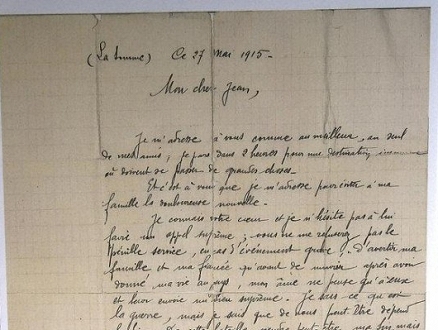 (La                ) Ce 27 Mai 1915 -
Mon cher Jean,
Je m'adresse à vous comme au meilleur, au seul
de mes amis, je pars dans 2 heures pour une destination inconnue
où doivent se passer de grandes choses.
Et c'est à vous que je m'adresse pour éviter à ma
famille la douloureuse nouvelle.
Je connais votre cœur et je n'hésite pas à lui
faire un appel suprême ; vous ne me refuserez pas le
pénible service, en cas d'événement grave, d'avertir ma
famille et ma fiancée qu'avant de mourir après avoir
donné ma vie au pays, mon âme ne pense qu'à eux
et leur envoie un adieu suprême. Je sais ce qu'est
la guerre, mais je sais que de nous peut être dépend